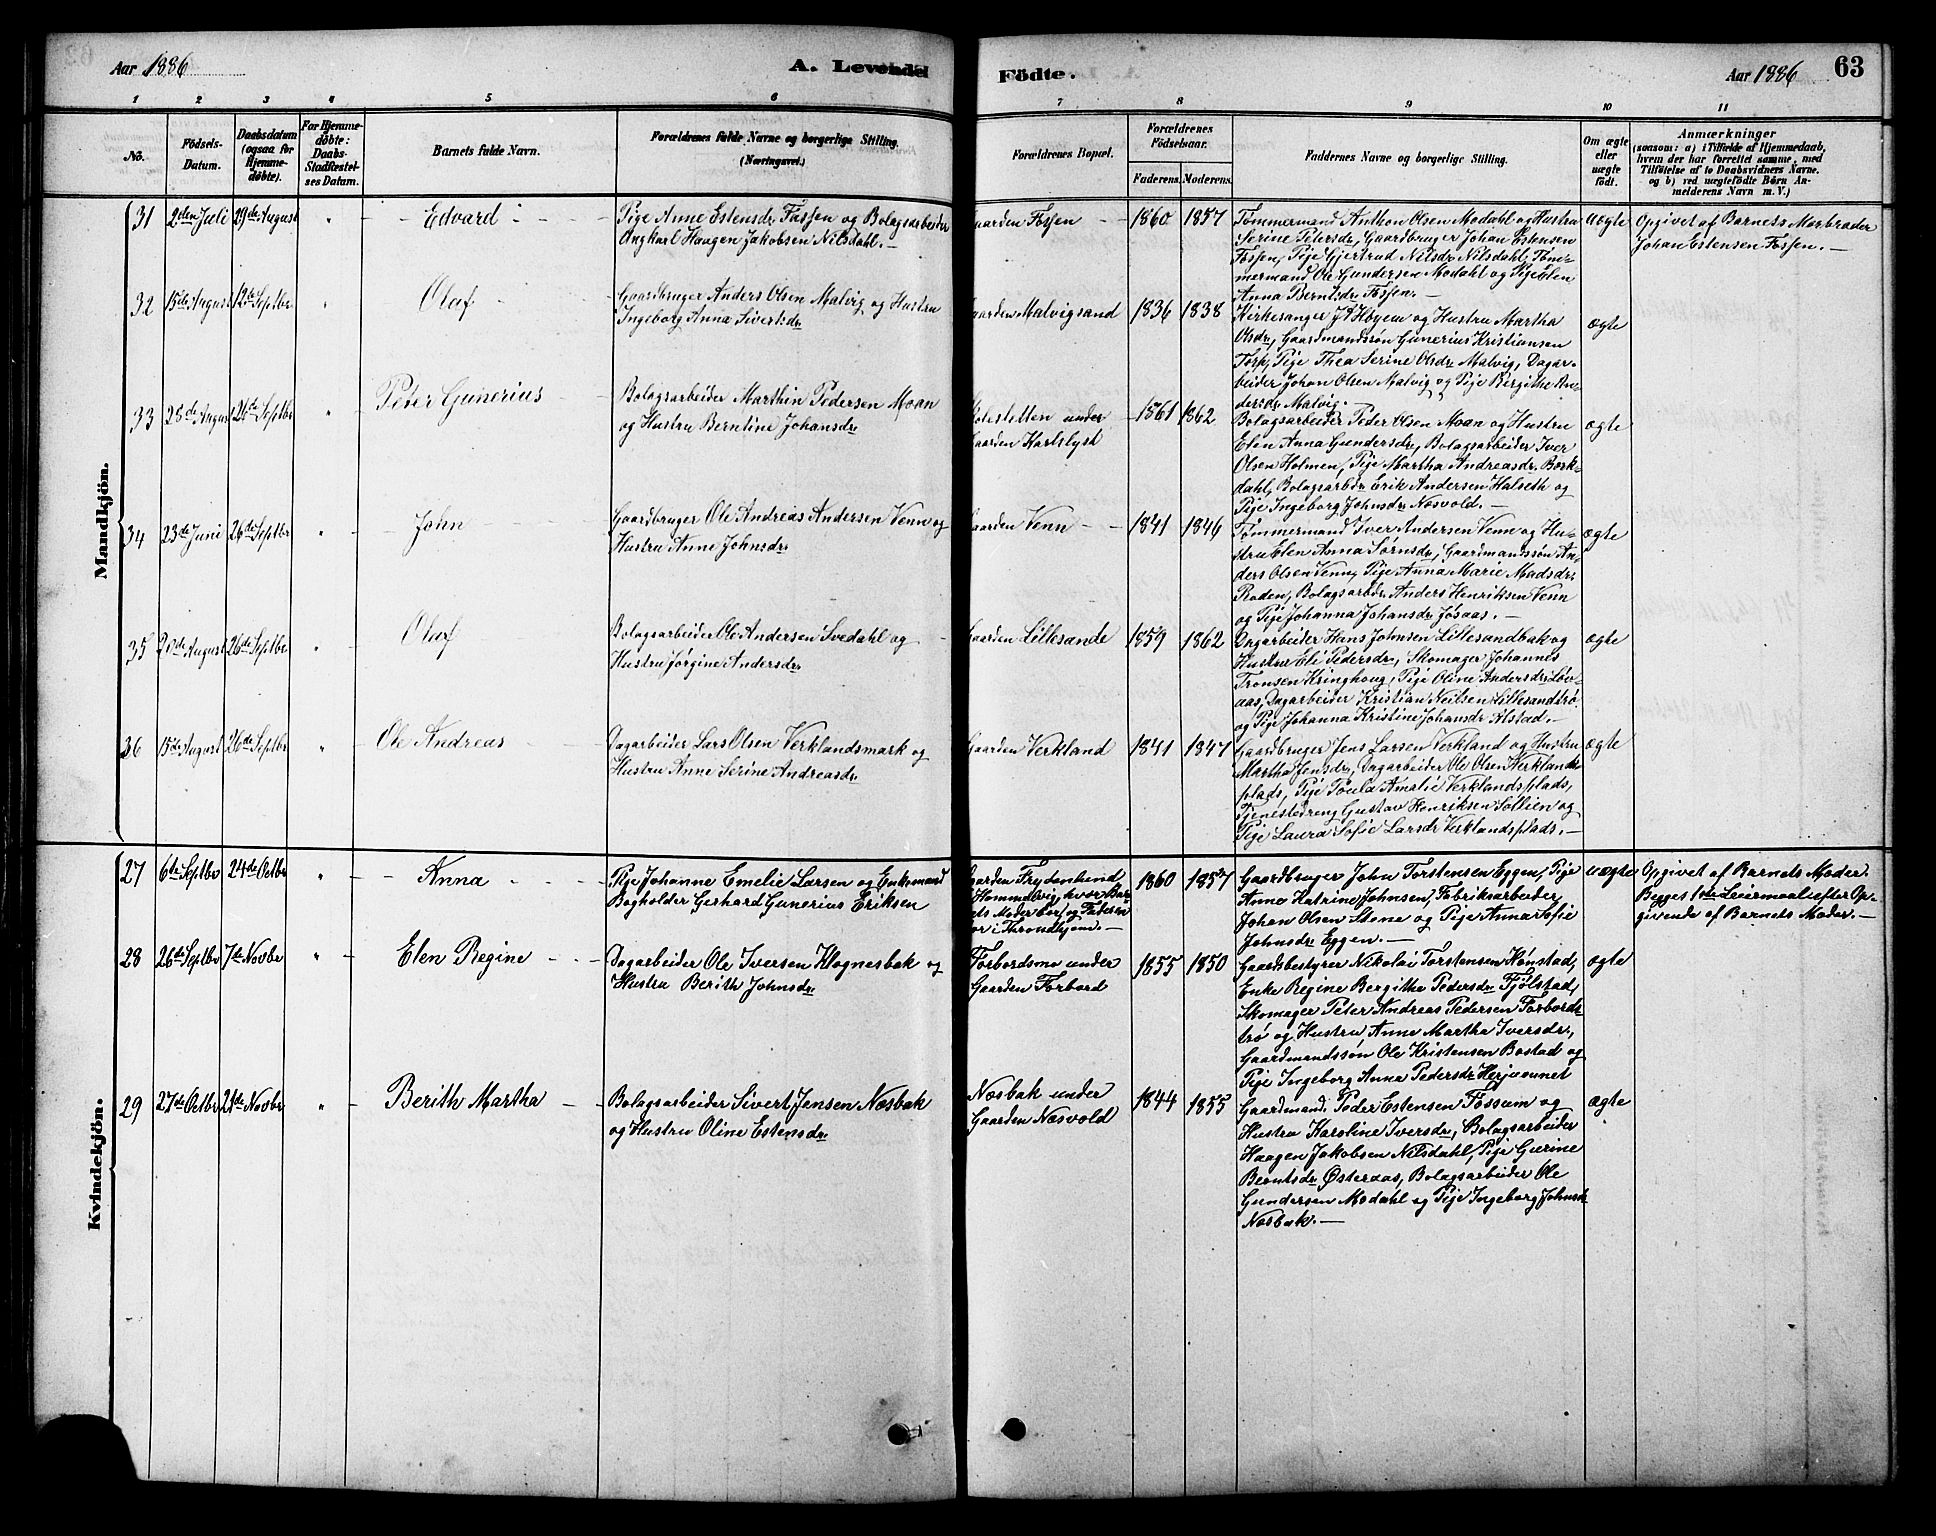 Aar 1886
A. Levende
Födte.
Aar 1886
63
1 2 3 4 5 6 7 8 9 10 11
No.
Födsels-
Datum.
Daabsdatum
(ogsaa for
Hjemme-
døbte).
For Hjemme-
døbte:
Daabs-
Stadfæstel-
ses Datum.
Barnets fulde Navn.
Forældrenes fulde Navne og borgerlige Stilling.
(Næringsvei.)
Forældrenes Bopæl.
Forældrenes
Födselsaar.
Faderens. Moderens.
Faddernes Navne og borgerlige Stilling.
Om ægte
eller
uægte
födt.
Anmærkninger
(saasom: a) i Tilfælde af Hjemmedaab,
hvem der har forrettet samme, med
Tilføielse af to Daabsvidners Navne.
og b) ved uægtefödte Börn An-
melderens Navn m. V.)
Mandkjön.
31
2den Juli
29de August
Edvard
Pige Anne Estensdr Fossen og Bolagsarbeider
Ungkarl Haagen Jakobsen Nilsdahl.
Gaarden Fossen
1860 1857
Tømmermand Anthon Olsen Modahl og Hustru
Serine Petersdr, Gaardbruger Johan Estensen
Fossen, Pige Gjertrud Nilsdr Nilsdahl, Töm-
mermand Ole Gundersen Modahl og Pige Elen
Anna Berntsdr Fossen.
uægte
Opgivet af Barnets Morbroder
Johan Estensen Fossen.
32
15de August
12de Septbr
Olaf
Gaardbruger Anders Olsen Malvig og Hustru
Ingeborg Anna Sivertsdr
Gaarden Malvigsand
1836 1838
Kirkesanger J. Høyem og Hustru Martha
Olsdr, Gaardmandssøn Gunerius Kristiansen
Torp, Pige Thea Serine Olsdr Malvig, Dagar-
beider Johan Olsen Malvig og Pige Birgithe An-
dersdr Malvig.
ægte
33
28de August
26de Septbr
Peter Gunerius
Bolagsarbeider Marthin Pedersen Moan
og Hustru Berntine Johansdr
under
Gaarden Karlslyst
1861 1862
Bolagsarbeider Peder Olsen Moan og Hustru
Elen Anna Gundersdr, Bolagsarbeider Iver
Olsen Holmen, Pige Martha Andreasdr. Bork-
dahl, Bolagsarbdr Erik Andersen Halseth og
Pige Ingeborg Johnsdr Næsvold.
ægte
34
23de Juni
26de Septbr
John
Gaardbruger Ole Andreas Andersen Venn og
Hustru Anne Johnsdr
Gaarden Venn
1841 1846
Tømmermand Iver Andersen Venn og Hu-
stru Elen Anna Sørnsdr, Gaardmandssøn An-
ders Olsen Venn, Pige Anna Marie Madsdr.
Roden, Bolagsarbdr. Anders Henriksen Venn
og Pige Johanna Johansdr Jøsaas.
ægte
35
20de August
26de Septbr
Olaf
Bolagsarbeider Ole Andersen Svedahl og
Hustru Jørgine Andersdr
Gaarden Lillesande
1859 1862
Dagarbeider Hans Johnsen Lillesandbak og
Hustru Eli Pedersdr, Skomager Johannes
Tronsen Kringhoug, Pige Oline Andersdr Løv-
aas, Dagarbeider Kristian Neilsen Lillesandtrø
og Pige Johanna Kristine Johansdr Alstad.
ægte
36
15de August
26de Septbr
Ole Andreas
Dagarbeider Lars Olsen Verklandsmark og
Hustru Anne Serine Andreasdr
Gaarden Verkland
1841 1847
Gaardbruger Jens Larsen Verkland og Hustru
Martha Jensdr, Dagarbeider Ole Olsen Verklands-
plads, Pige Toula Amalie Verklandsplads,
Tjenestedreng Gustav Henriksen Sollien og
Pige Laura Sofie Larsdr Verklandsplads.
ægte
Kvindekjön.
27
6te Septbr
24de Octbr
Anna
Pige Johanne Emelie Larsen og Enkemand
Bogholder Gerhard Gunerius Eriksen
Gaarden Frydenlund
Hommelvig, hvor Bar-
nets Moder bor, og Faderen
bor i Throndhjem.
1860 1857
Gaardbruger John Torstensen Eggen, Pige
Anne Katrine Johnsen, Fabriksarbeider,
Johan Olsen Stene og Pige Anna Sofie
Johnsdr Eggen.
uægte
Opgivet af Barnets Moder.
Begges 1ste Leiermaal efter Op-
givende af Barnets Moder.
28
26de Septbr
7de Novbr
Elen Regine
Dagarbeider Ole Iversen Klognesbak og
Hustru Berith Johnsdr
Forbordsmo under
Gaarden Forbord
1855 1850
Gaardsbestyrer Nikolai Torstensen Hønstad,
Enke Regine Bergitha Pedersdr Fjølstad,
Skomager Peter Andreas Pedersen Forbords-
trø og Hustru, Anne Martha Iversdr,
Gaardmandssøn Ole Kristensen Bostad og
Pige Ingeborg Anna Pedersdr Herjuaunet
ægte
29
27de Octbr
21de Novbr
Berith Martha
Bolagsarbeider Sivert Jensen Næsbak
og Hustru Oline Estensdr
Næsbak under
Gaarden Næsvold
1844 1855
Gaardmand. Peder Estensen Fossum og
Hustru Karoline Iversdr, Bolagsarbeider
Haagen Jakobsen Nilsdahl, Pige Gurine
Berntsdr Østeraas, Bolagsarbeider Ole
Gundersen Modahl og Pige Ingeborg Johnsdr
Næsbak.
ægte